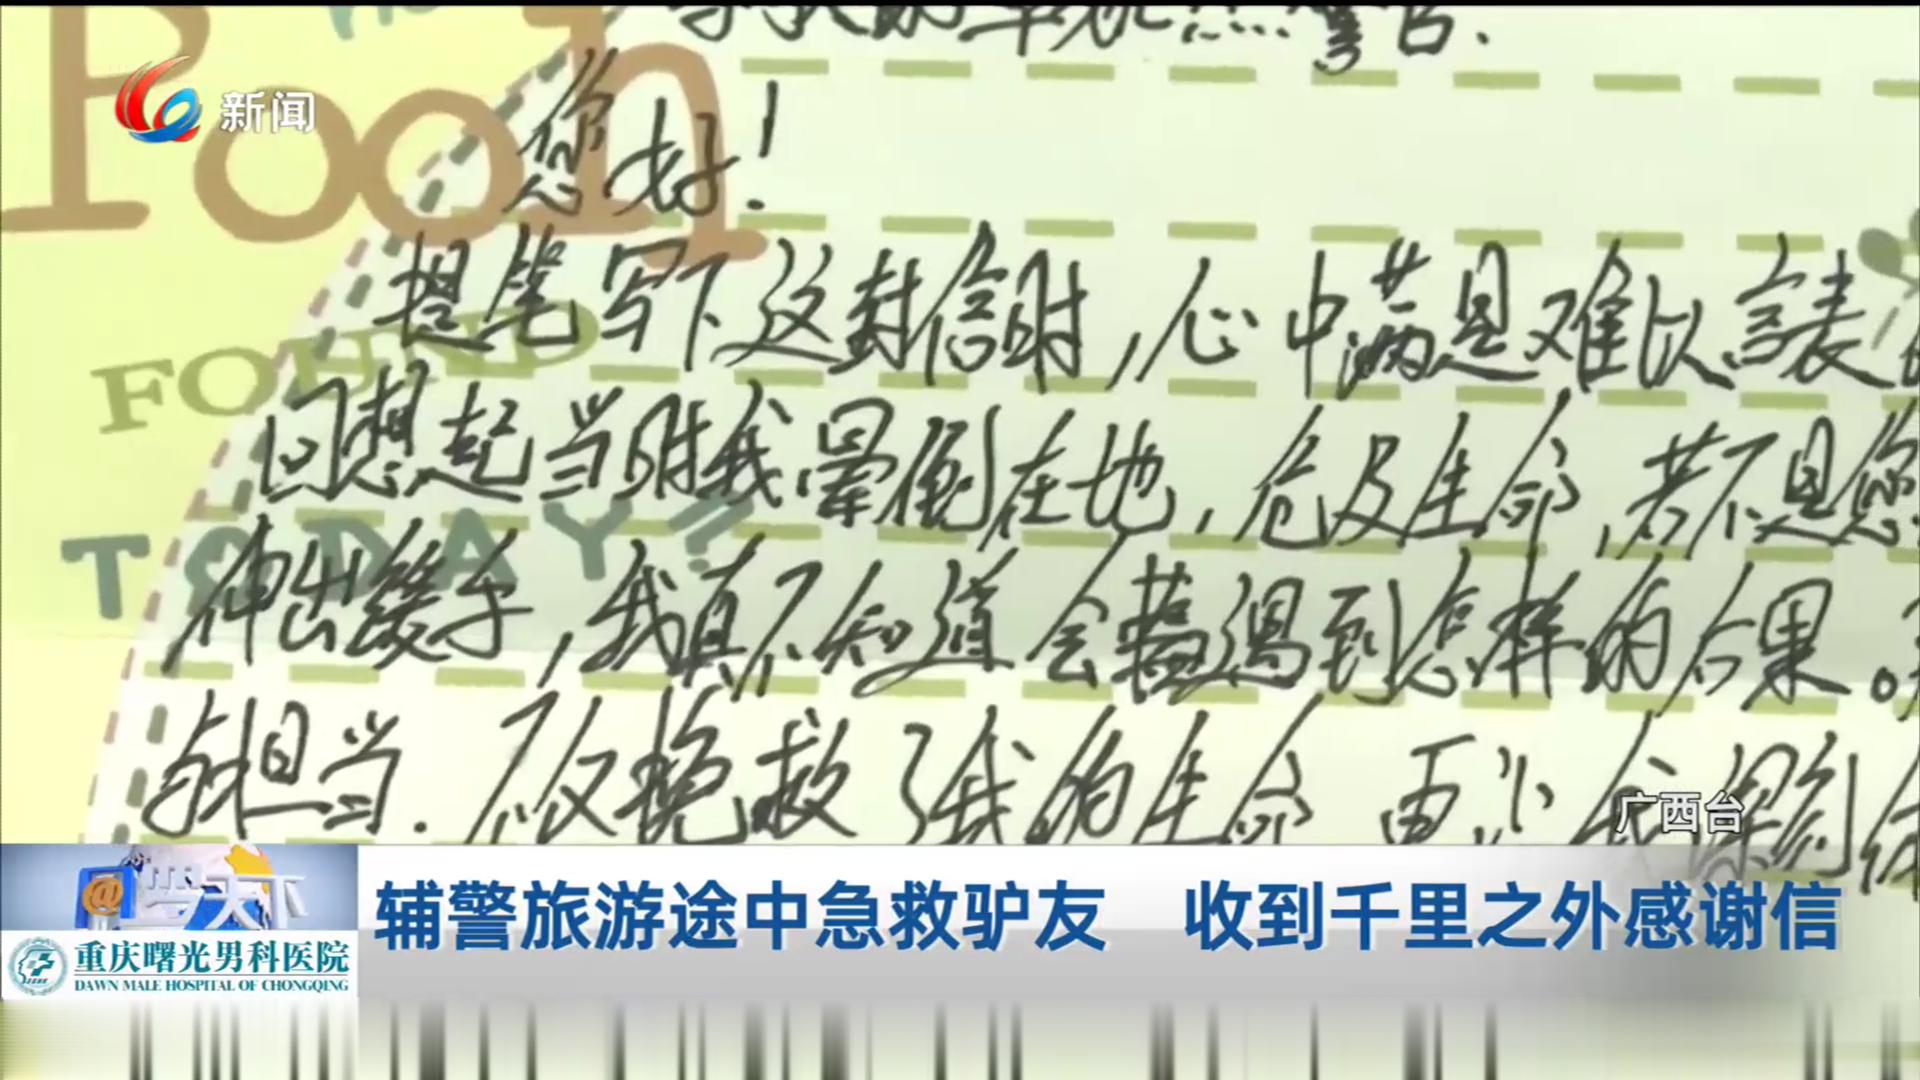 Pooh
新闻
您好！
提笔写下这封信时，心中满是难以言表
FOUND
回想起当时我晕倒在地，危及生命，若不是您
TODAY?
伸出援手，我真不知道会遭遇到怎样的后果。
与担当．不仅挽救了我的生命 更让我深刻体
广西台
@ 天下
辅警旅游途中急救驴友 收到千里之外感谢信
重庆曙光男科医院
DAWN MALE HOSPITAL OF CHONGQING